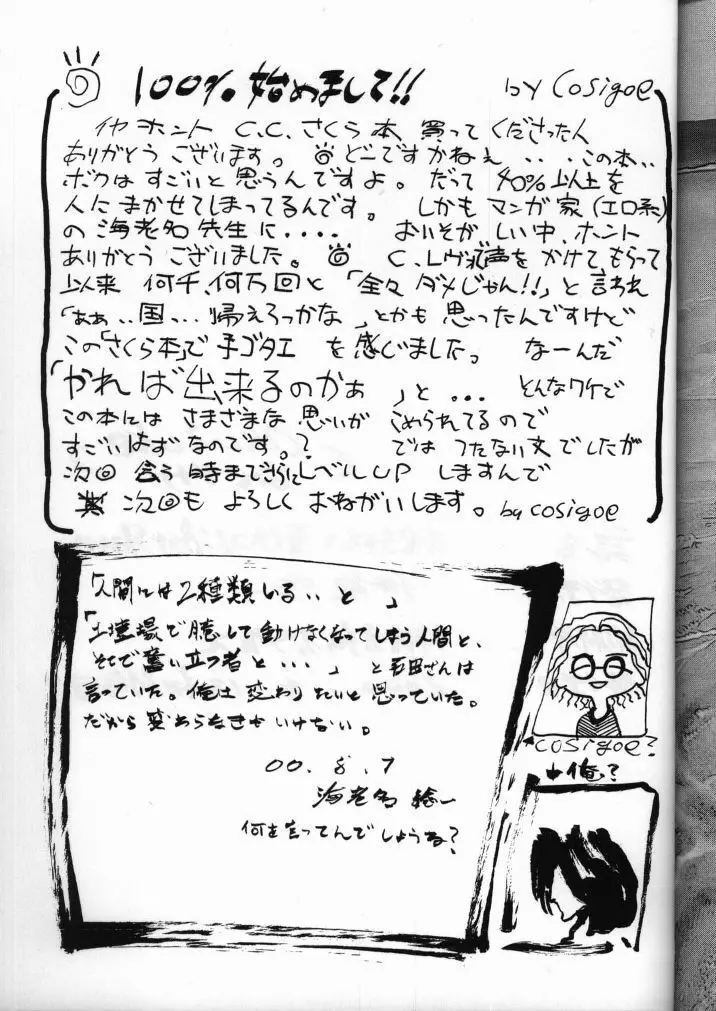 100%始めまして!! by Cosigoe
イヤ ホント C.C.さくら本 買ってくださった人
ありがとうございます。 どーですかねぇ ...この本..
ボクはすごいと思うんですよ。だって 40%以上を
人にまかせてしまってるんです。 しかもマンガ家(エロ系)
の海老名先生に.... おいそがしい中、ホント
ありがとうございました。 C.Lヴで声をかけてもらって
以来 何千、何万回と「全々ダメじゃん!!」と言われ
「あぁ..国...帰えろっかな」とかも思ったんですけど
この「さくら本」で手ゴタエを感じました。 なーんだ
「やれば出来るのかぁ」と... とんなワケで
この本には さまざまな思いが こめられてるので
すごいはずなのです。? では つたない文でしたが
次回 会う時までさらにレベルUP しますんで
次回も よろしくおねがいします。 by cosigoe
「人間には2種類いる..と」
「土壇場で臆して動けなくなってしまう人間と、
そこで奮い立つ者と...」と 石田さんは
言っていた。俺は変わりたいと思っていた。
だから変わらなきゃいけない。
00.8.7
海老名
何を言ってんでしょうね?
cosigoe?
俺?